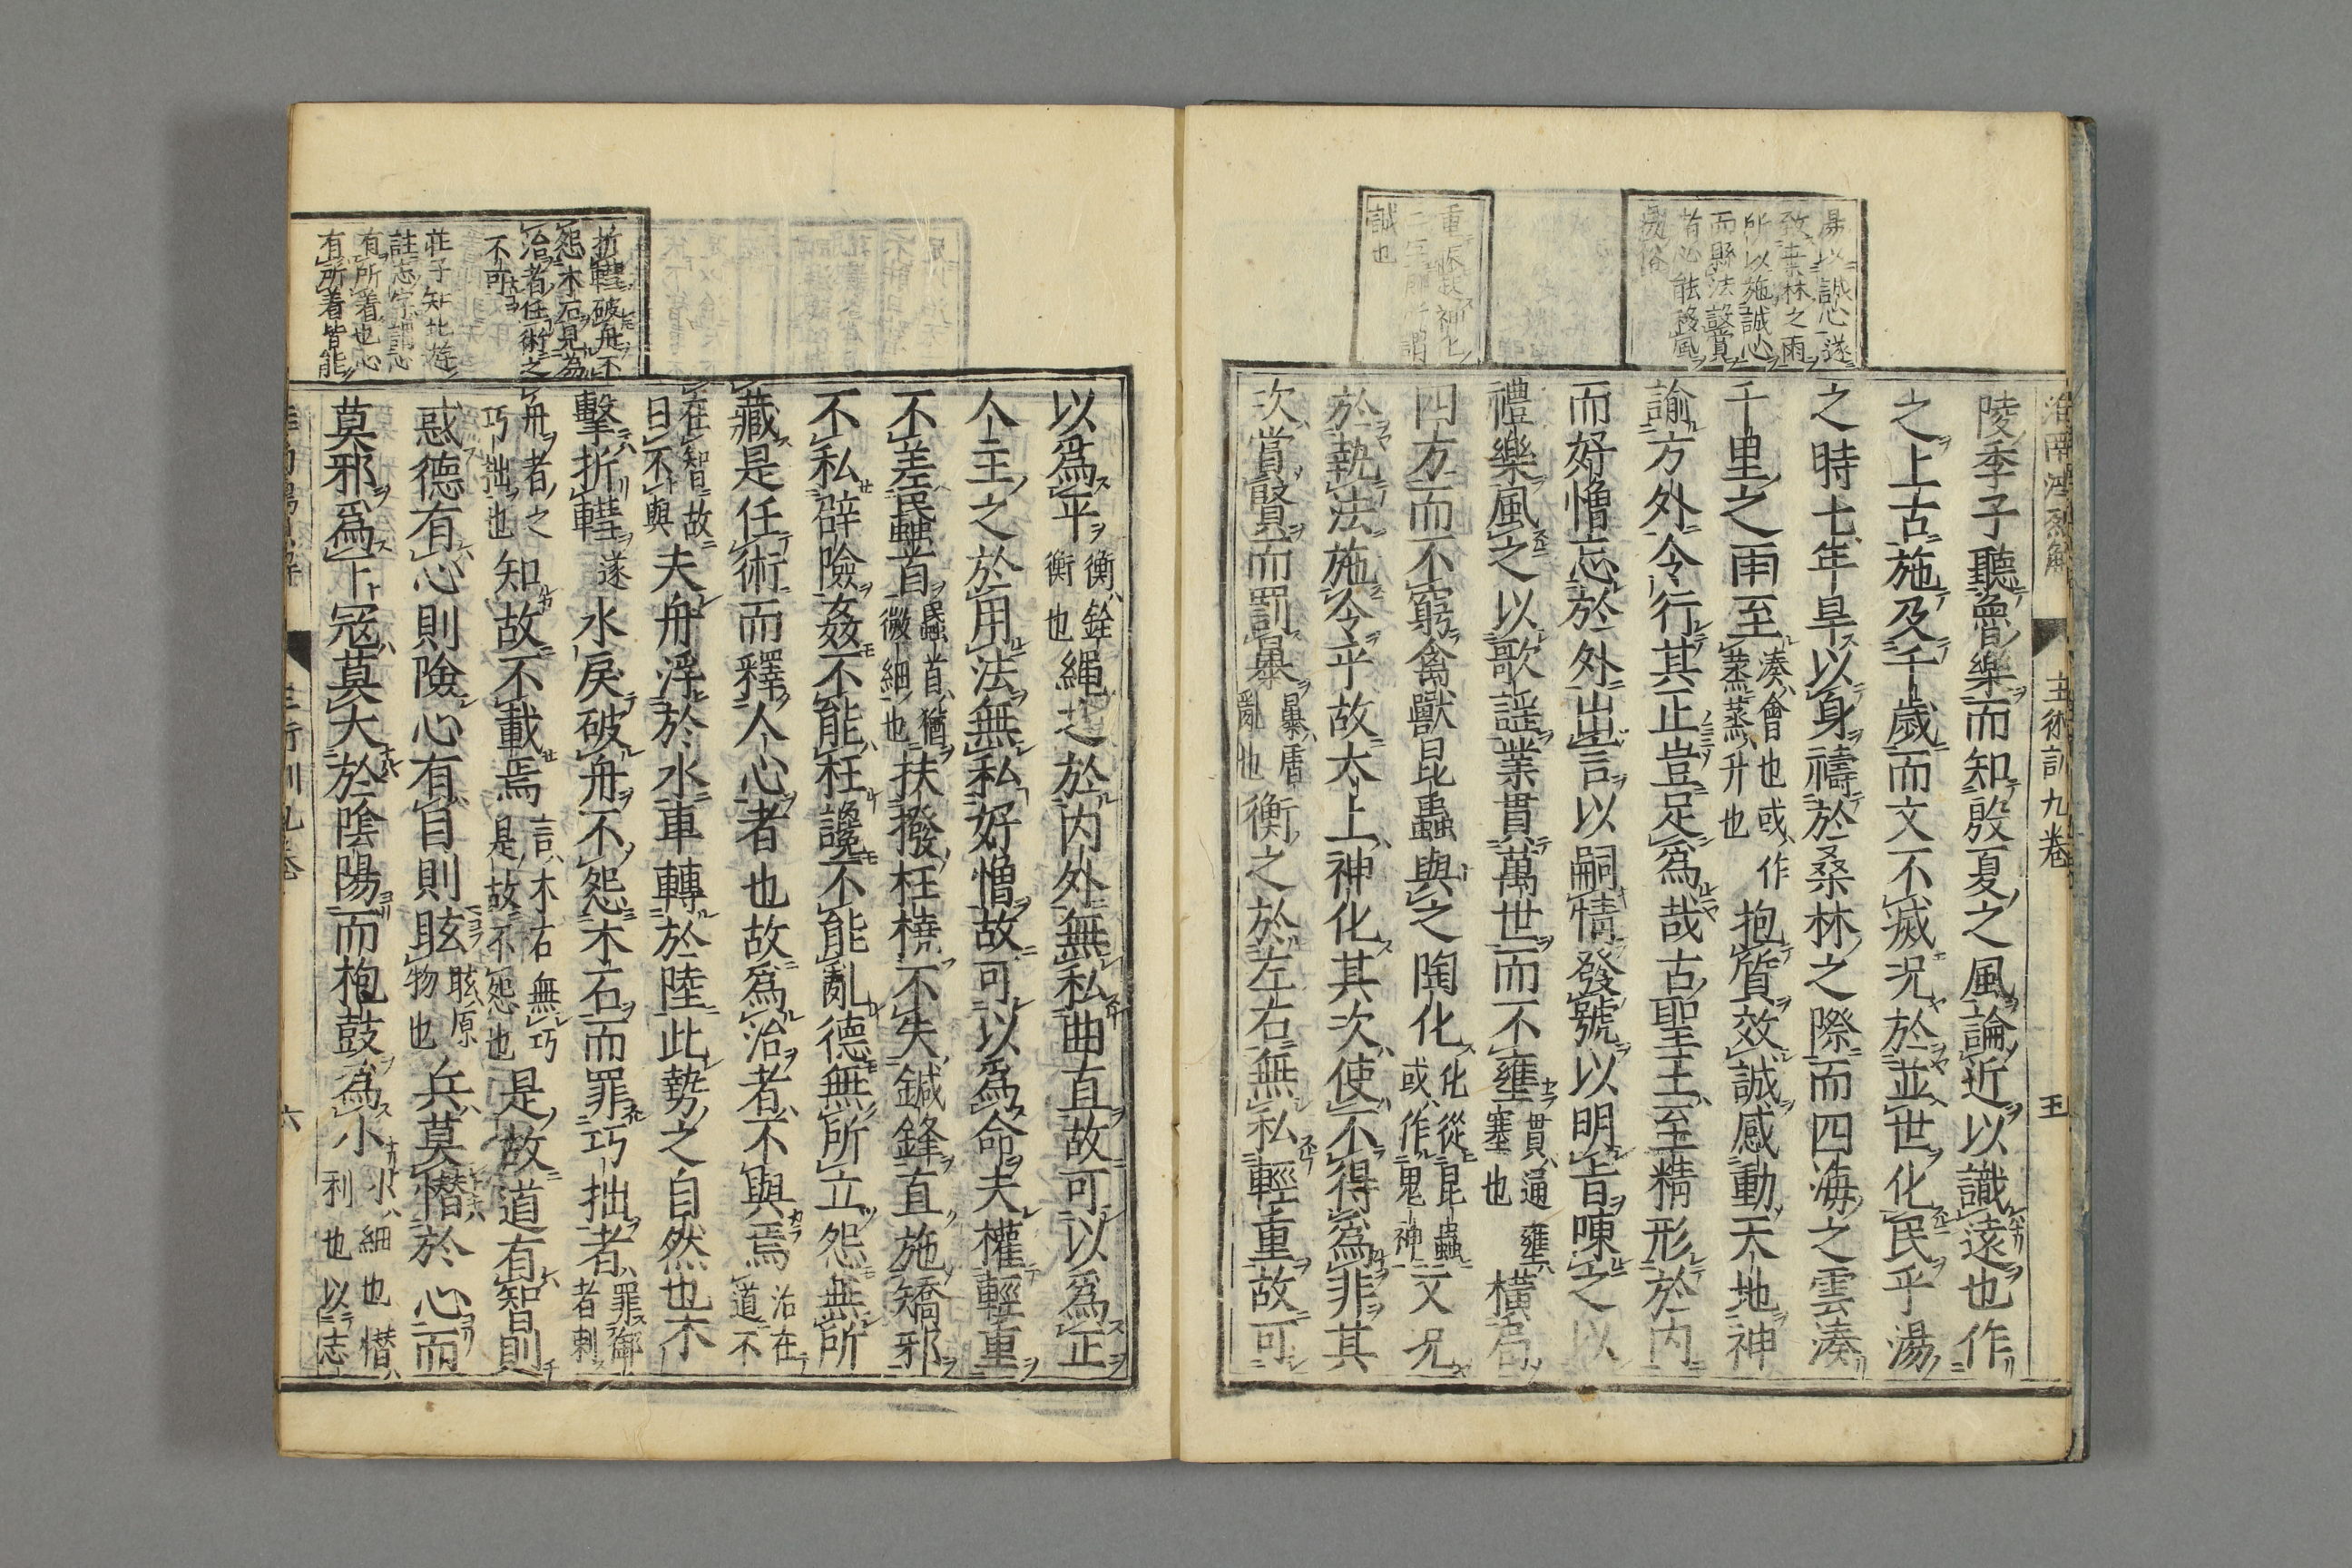 淮南鴻烈解
主術訓九卷
五
湯以誠心遂
致桑林之雨
所以施誠心
而縣法設賞
者必能移風
易俗
誠也
陵季子聽魯樂而知殷夏之風論近以識遠也作
之上古施及千歲而文不滅况於並世化民乎湯
之時七年旱以身禱於桑林之際而四海之雲湊
千里之雨至湊會也或作蒸蒸升也抱質效誠感動天地神
諭方外令行其正豈足爲哉古聖王至精形於内
而好憎忘於外出言以嗣情發號以明旨㖦之以
禮樂風之以歌謡業貫萬世而不壅貫通壅塞也橫扃
四方而不窮禽獸昆蟲與之陶化化從昆蟲或作鬼神又况
於執法施令乎故太上神化其次使不得爲非其
次賞賢而罰暴暴虐亂也衡之於左右無私輕重故可
折轊破舟不
怨木石見爲
治者任術之
不可
莊子知北遊
註志字謂心
有所着也心
有所着皆能
以爲平衡銓衡也繩之於内外無私曲直故可以爲正
人主之於用法無私好憎故可以爲命夫權輕重
不差䖟首䖟首猶微細也扶撥枉橈不失鍼鋒直施矯邪
不私辟險姦不能枉讒不能亂德無所立怨無所
藏是任術而釋人心者也故爲治者不與焉治在道不
在智故曰不與夫舟浮於水車轉於陸此勢之自然也木
擊折轊遂水戾破舟不怨木石而罪巧拙者罪御者刺
舟者之巧拙也知故不載焉言木石無巧是故不怨也是故道有智則
惑德有心則險心有目則眩眩原物也兵莫憯於心而
莫邪爲下寇莫大於陰陽而枹鼓爲小小細也憯利也以志
六